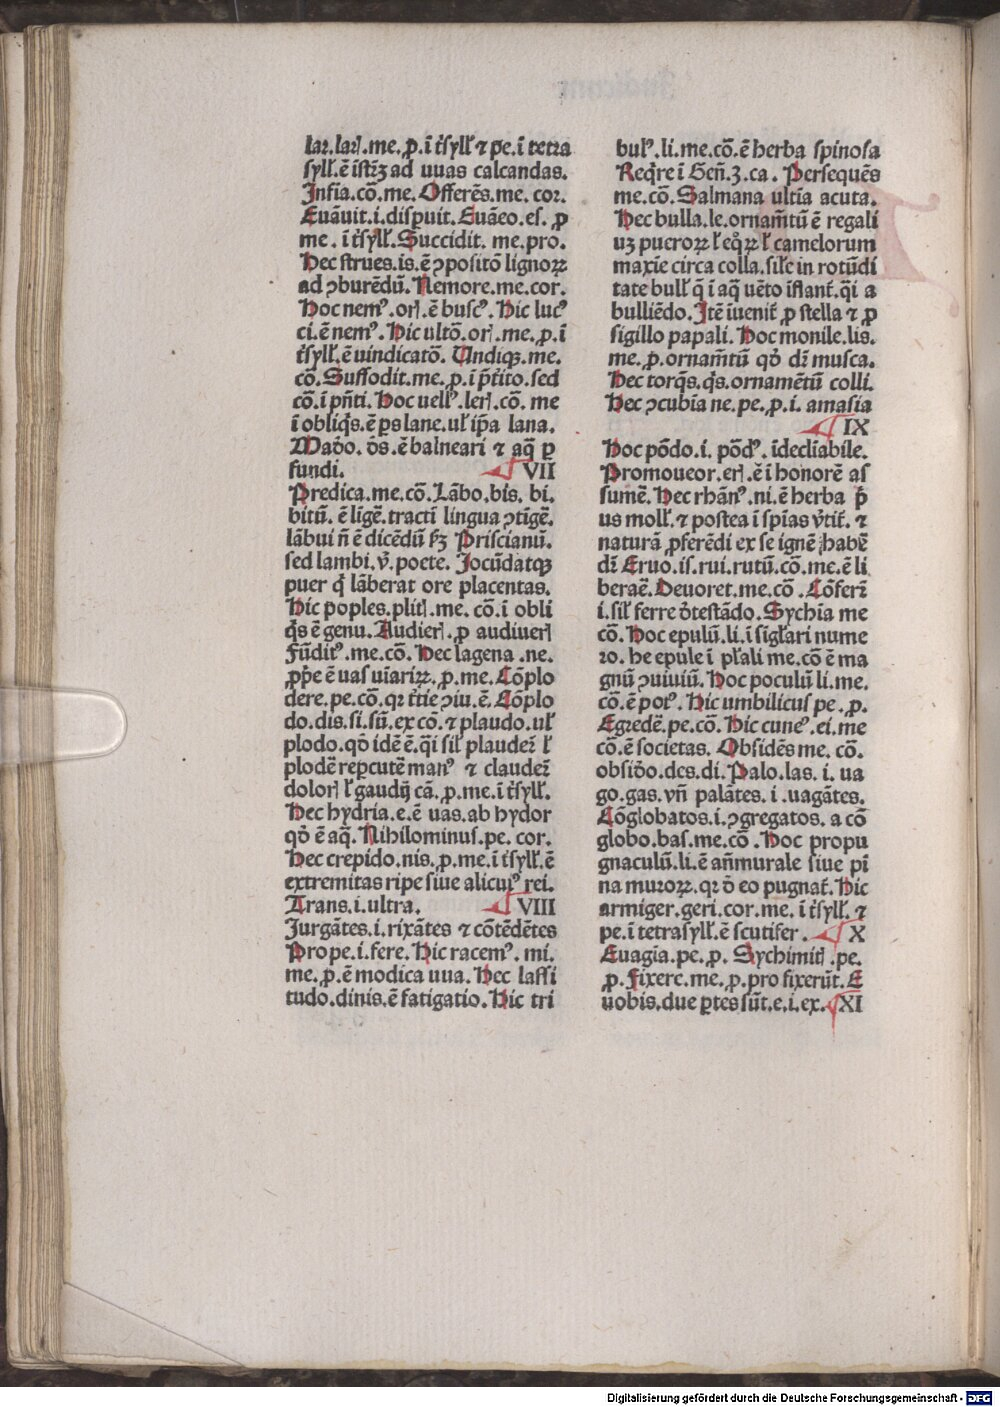 lar.larꝭ.me.ꝓ.ī t̓syll̓ ⁊ pe.ī tetra
syll̓.ē īstr̄ʒ ad uuas calcandas.
Infia.cō.me. Offerēs.me. cor.
Euāuit.i.disꝑuit. Euāeo.es. ꝓ
me. ī t̓syll̓. Succidit. me.pro.
Hec strues.is.ē ꝯpositō lignoꝝ
ad ꝯburēdū. Nemore.me.cor.
Hoc nemꝰ.orꝭ.ē buscꝰ. Hic lucꝰ
ci.ē nemꝰ. Hic ultō.orꝭ.me.ꝓ.ī
t̓syll̓.ē uindicatō. Undiqꝫ.me.
cō. Suffodit.me.ꝓ.ī p̄t̓ito.sed
cō.ī pn̄ti. Hoc uellꝰ.lerꝭ.cō. me
ī obliq̄s.ē ꝑs lane.ul̓ ip̄a lana.
Mado̓.o̓s.ē balneari ⁊ aq̄ ꝑ
fundi. VII
Predica.me.cō. Lābo.bis. bi.
bitū. ē ligē̄.tractī lingua ꝯtīgē̄.
lābui n̄ ē dicēdū ẜʒ Priscianū.
sed lambi.v̓. poete. Iocūdatqꝫ
puer q̓ lāberat ore placentas.
Hic poples.plitꝭ.me. cō.ī obli
q̄s ē genu. Audierꝭ. ꝓ audiuerꝭ
Fūditꝰ.me.cō. Hec lagena .ne.
ꝓp̄e ē uas uīariꝝ. ꝓ.me. Cōplo
dere.pe.cō.qꝛ t̄t̓ie ꝯiu.ē. Cōplo
do.dis.si.sū.ex cō.⁊ plaudo.ul̓
plodo.qo̓ idē ē.q̄i sil̓ plauder̄ l̓
plodē̄ reꝑcutē̄ manꝰ ⁊ clauder̄
dolorꝭ l̓ gaudij cā. ꝓ.me.ī t̓syll̓.
Hec hydria.e.ē uas.ab hydor
qo̓ ē aq̄. Nihilominus.pe. cor.
Hec crepido.nis.ꝓ.me.ī t̓syll̓.ē
extremitas ripe siue alicuiꝰ rei.
Trans.i.ultra. VIII
Iurgātes.i.rixātes ⁊ cōtēdētes
Prope.i.fere. Hic racemꝰ. mi.
me.ꝓ.ē modica uua. Hec lassi
tudo.dinis.ē fatigatio. Hic tri
bulꝰ.li.me.cō.ē herba spinosa
Req̄re ī Gen̄.3.ca. Persequēs
me.cō. Salmana ultīa acuta.
Hec bulla.le.ornam̄tū ē regali
uʒ pueroꝝ l̓ eq̊ꝝ l̓ camelorum
maxīe circa colla.sil̓e in rotūdi
tate bull̓ q̄ ī aq̄ uēto īflant̓.q̄i a
bulliēdo. Itē īuenit̓ ꝓ stella ⁊ ꝓ
sigillo papali. Hoc monile.lis.
me.ꝓ.ornam̄tū qo̓ dr̄ musca.
Hec torq̄s.q̄s.ornamētū colli.
Hec ꝯcubīa ne.pe.ꝓ.i. amasia
IX
Hoc pōdo.i. pōdꝰ. īdecliabile.
Promoueor.erꝭ.ē ī honorē as
sumē̄. Hec rhānꝰ.ni.ē herba p̄
us moll̓.⁊ postea ī spīas v̓tit̓. ⁊
naturā ꝓferēdi ex se ignē habē̄
dr̄ Eruo.is.rui.rutū.cō.me.ē li
beraē̄. Deuoret.me.cō . Cōferr̄
i.sil̓ ferre o̓testādo. Sychīa me
cō. Hoc epulū.li.ī sigl̓ari nume
ro. he epule ī pl̓ali me.cō ē ma
gnū ꝯuiuiū. Hoc poculū li.me.
cō.ē potꝰ. Hic umbilicus pe .ꝓ.
Egredē̄.pe.cō. Hic cuneꝰ.ei.me
cō.ē societas. Obsidēs me. cō.
obsido̓.des.di. Palo.las. i. ua
go.gas.vn̄ palātes. i .uagātes.
Cōglobatos.i.ꝯgregatos. a cō
globo.bas.me.cō . Hoc propu
gnaculū.li.ē an̄murale siue pī
na muroꝝ.qꝛ o̓ eo pugnat̓. Hic
armiger.geri.cor.me. ī t̓syll̓. ⁊
pe.ī tetrasyll̓.ē scutifer. X
Euagīa.pe.ꝓ. Sychimitꝭ .pe.
ꝓ. Fixere.me.ꝓ.pro fixerūt. E
uobis.due ꝑtes sūt.e.i.ex. XI
Digitalisierung gefördert durch die Deutsche Forschungsgemeinschaft - DFG